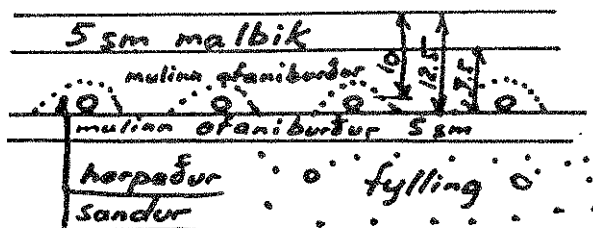 5 sm malbik
mulinn ofaníburður
10
12.5
7.5
mulinn ofaníburður 5 sm
harpaður
sandur
fylling